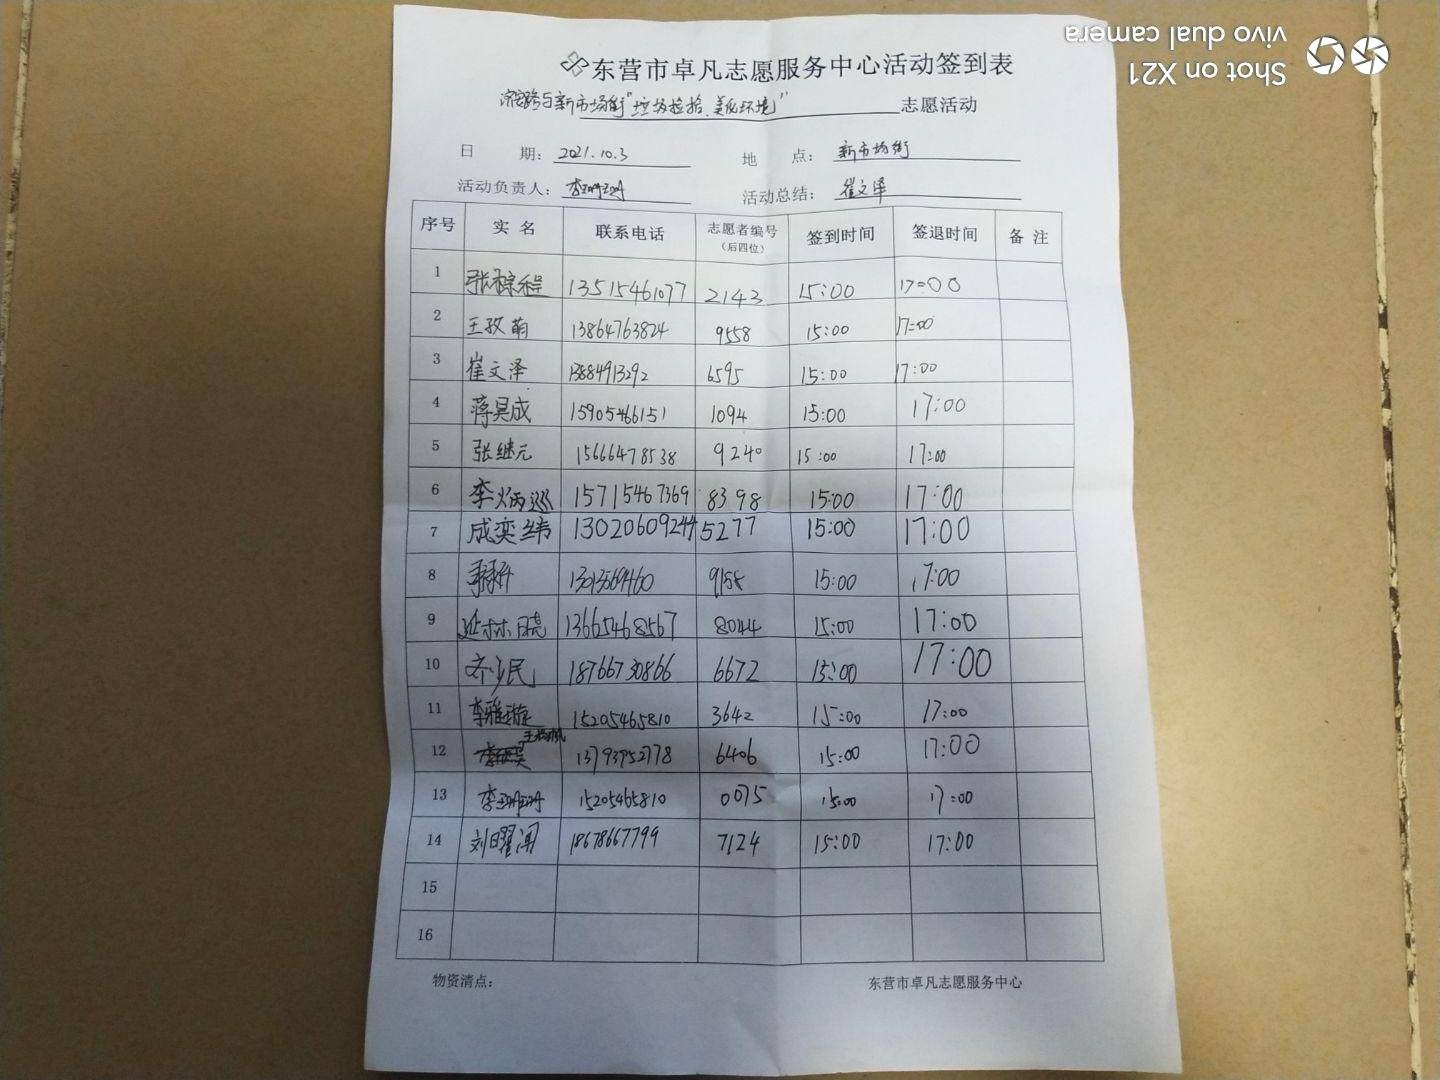 东营市卓凡志愿服务中心活动签到表
济宁路与新市场街"垃圾捡拾、美化环境" 志愿活动
日 期: 2021.10.3 地 点: 新市场街
活动负责人: 李珊珊 活动总结: 崔文泽
序号 实名 联系电话 志愿者编号(后四位) 签到时间 签退时间 备注
1 张稼程 13515461077 2143 15:00 17:00
2 王孜萌 13864763824 9558 15:00 17:00
3 崔文泽 13884913292 6595 15:00 17:00
4 蒋昊成 15905466151 1094 15:00 17:00
5 张继元 15666478538 9240 15:00 17:00
6 李炳巡 15715467369 8398 15:00 17:00
7 成奕纬 13020609244 5277 15:00 17:00
8 15:00 17:00
9 13665468567 8044 15:00 17:00
10 齐少民 18766730866 6672 15:00 17:00
11 李雅璇 15205465810 3642 15:00 17:00
12 13793952778 6406 15:00 17:00
13 李珊珊 15205465810 0075 15:00 17:00
14 刘曜闻 18678667799 7124 15:00 17:00
15
16
物资清点: 东营市卓凡志愿服务中心
Shot on X21
vivo dual camera